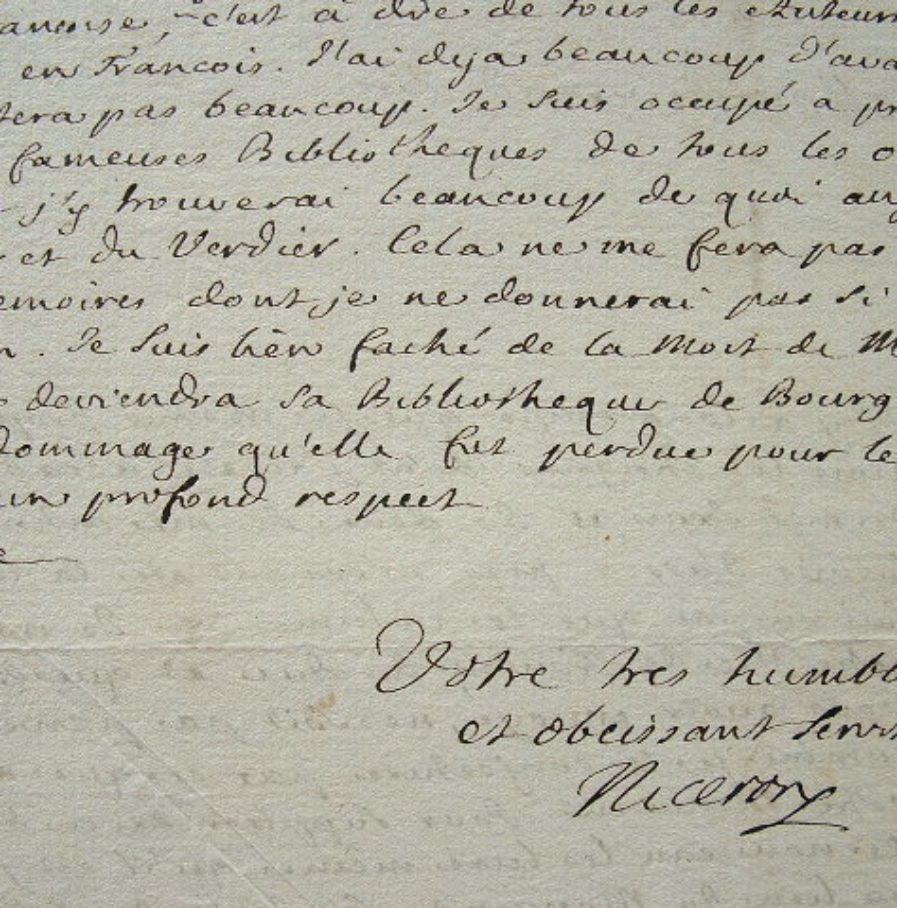 ancoise, c'est à dire de tous les auteurs
en Francois. J'ai deja beaucoup d'ava
tera pas beaucoup. Je suis occupé a pr
fameuses Bibliotheques de tous les o
j'y trouverai beaucoup de quoi aug
et du Verdier. Cela ne me fera pas
emoires dont je ne donnerai pas si
n. Je suis bien faché de la Mort de M
deviendra sa Bibliotheque de Bourg
dommage qu'elle fut perdue pour le
un profond respect
Votre tres humbl
et obeissant Servi
Niceron